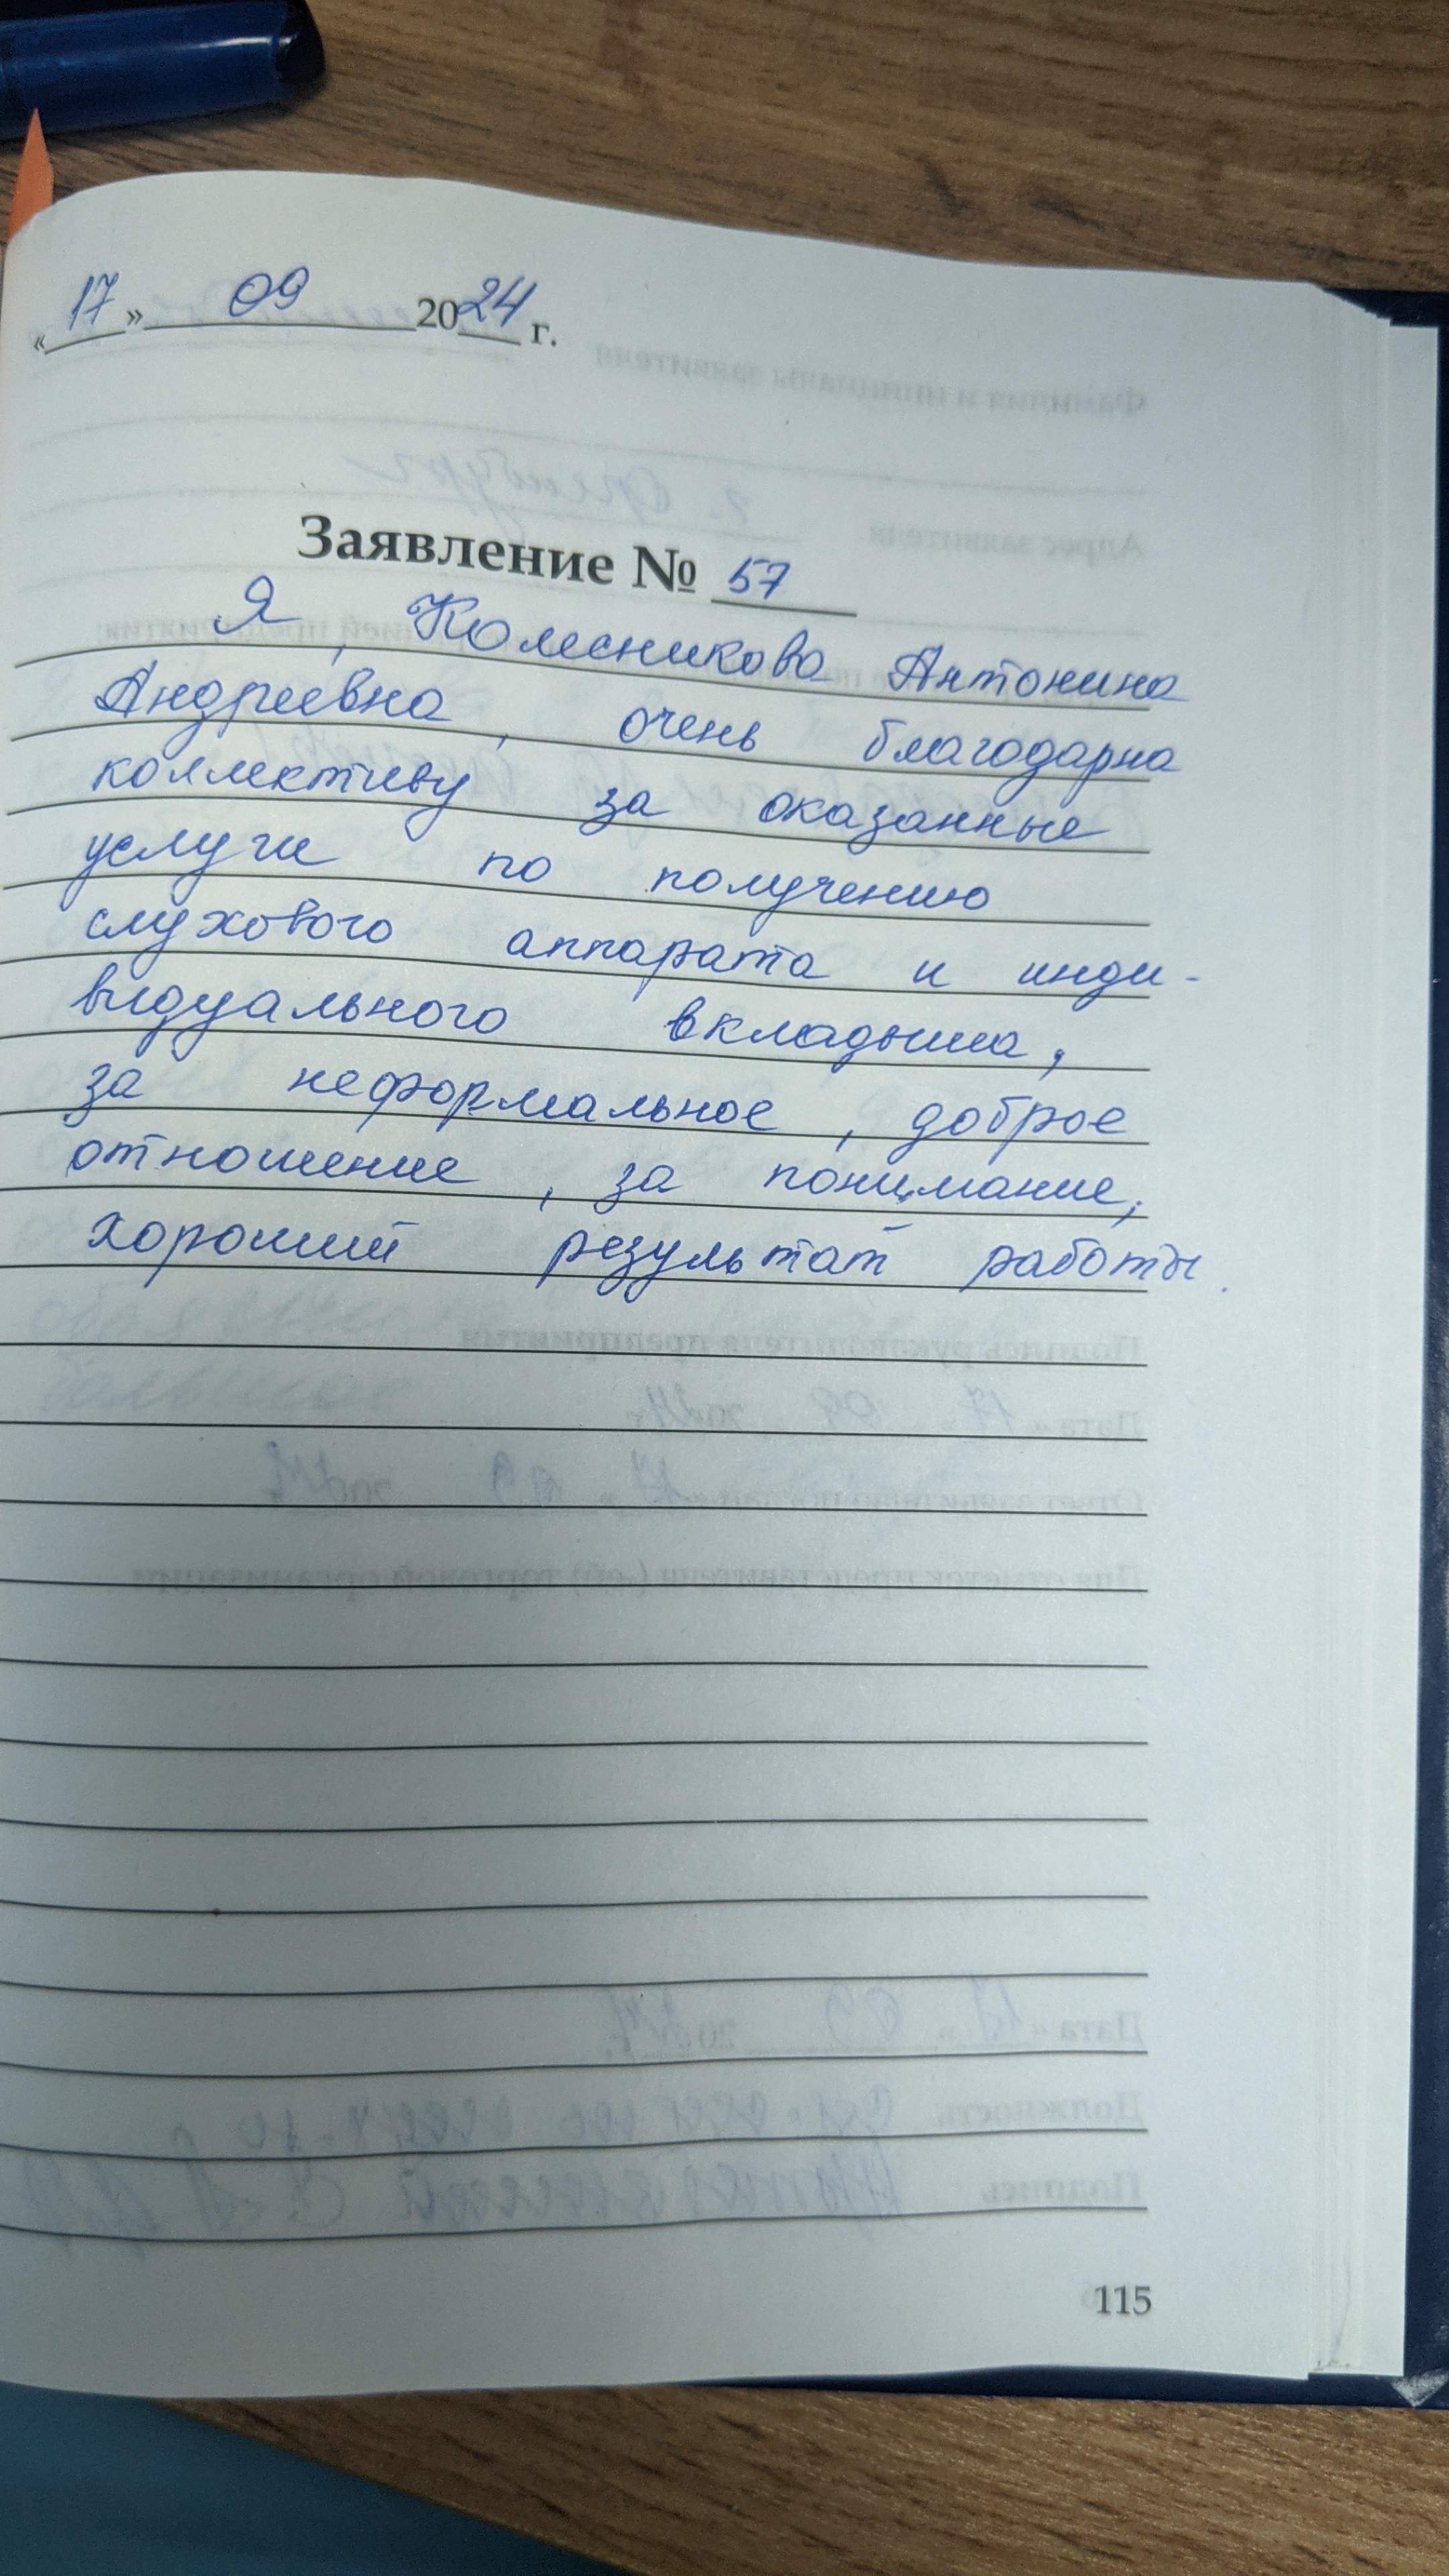 «17» 09 2024 г.
Заявление № 57
Я, Колесникова Антонина
Андреевна, очень благодарна
коллективу за оказанные
услуги по получению
слухового аппарата и инди-
видуального вкладыша,
за неформальное, доброе
отношение, за понимание,
хороший результат работы.
115